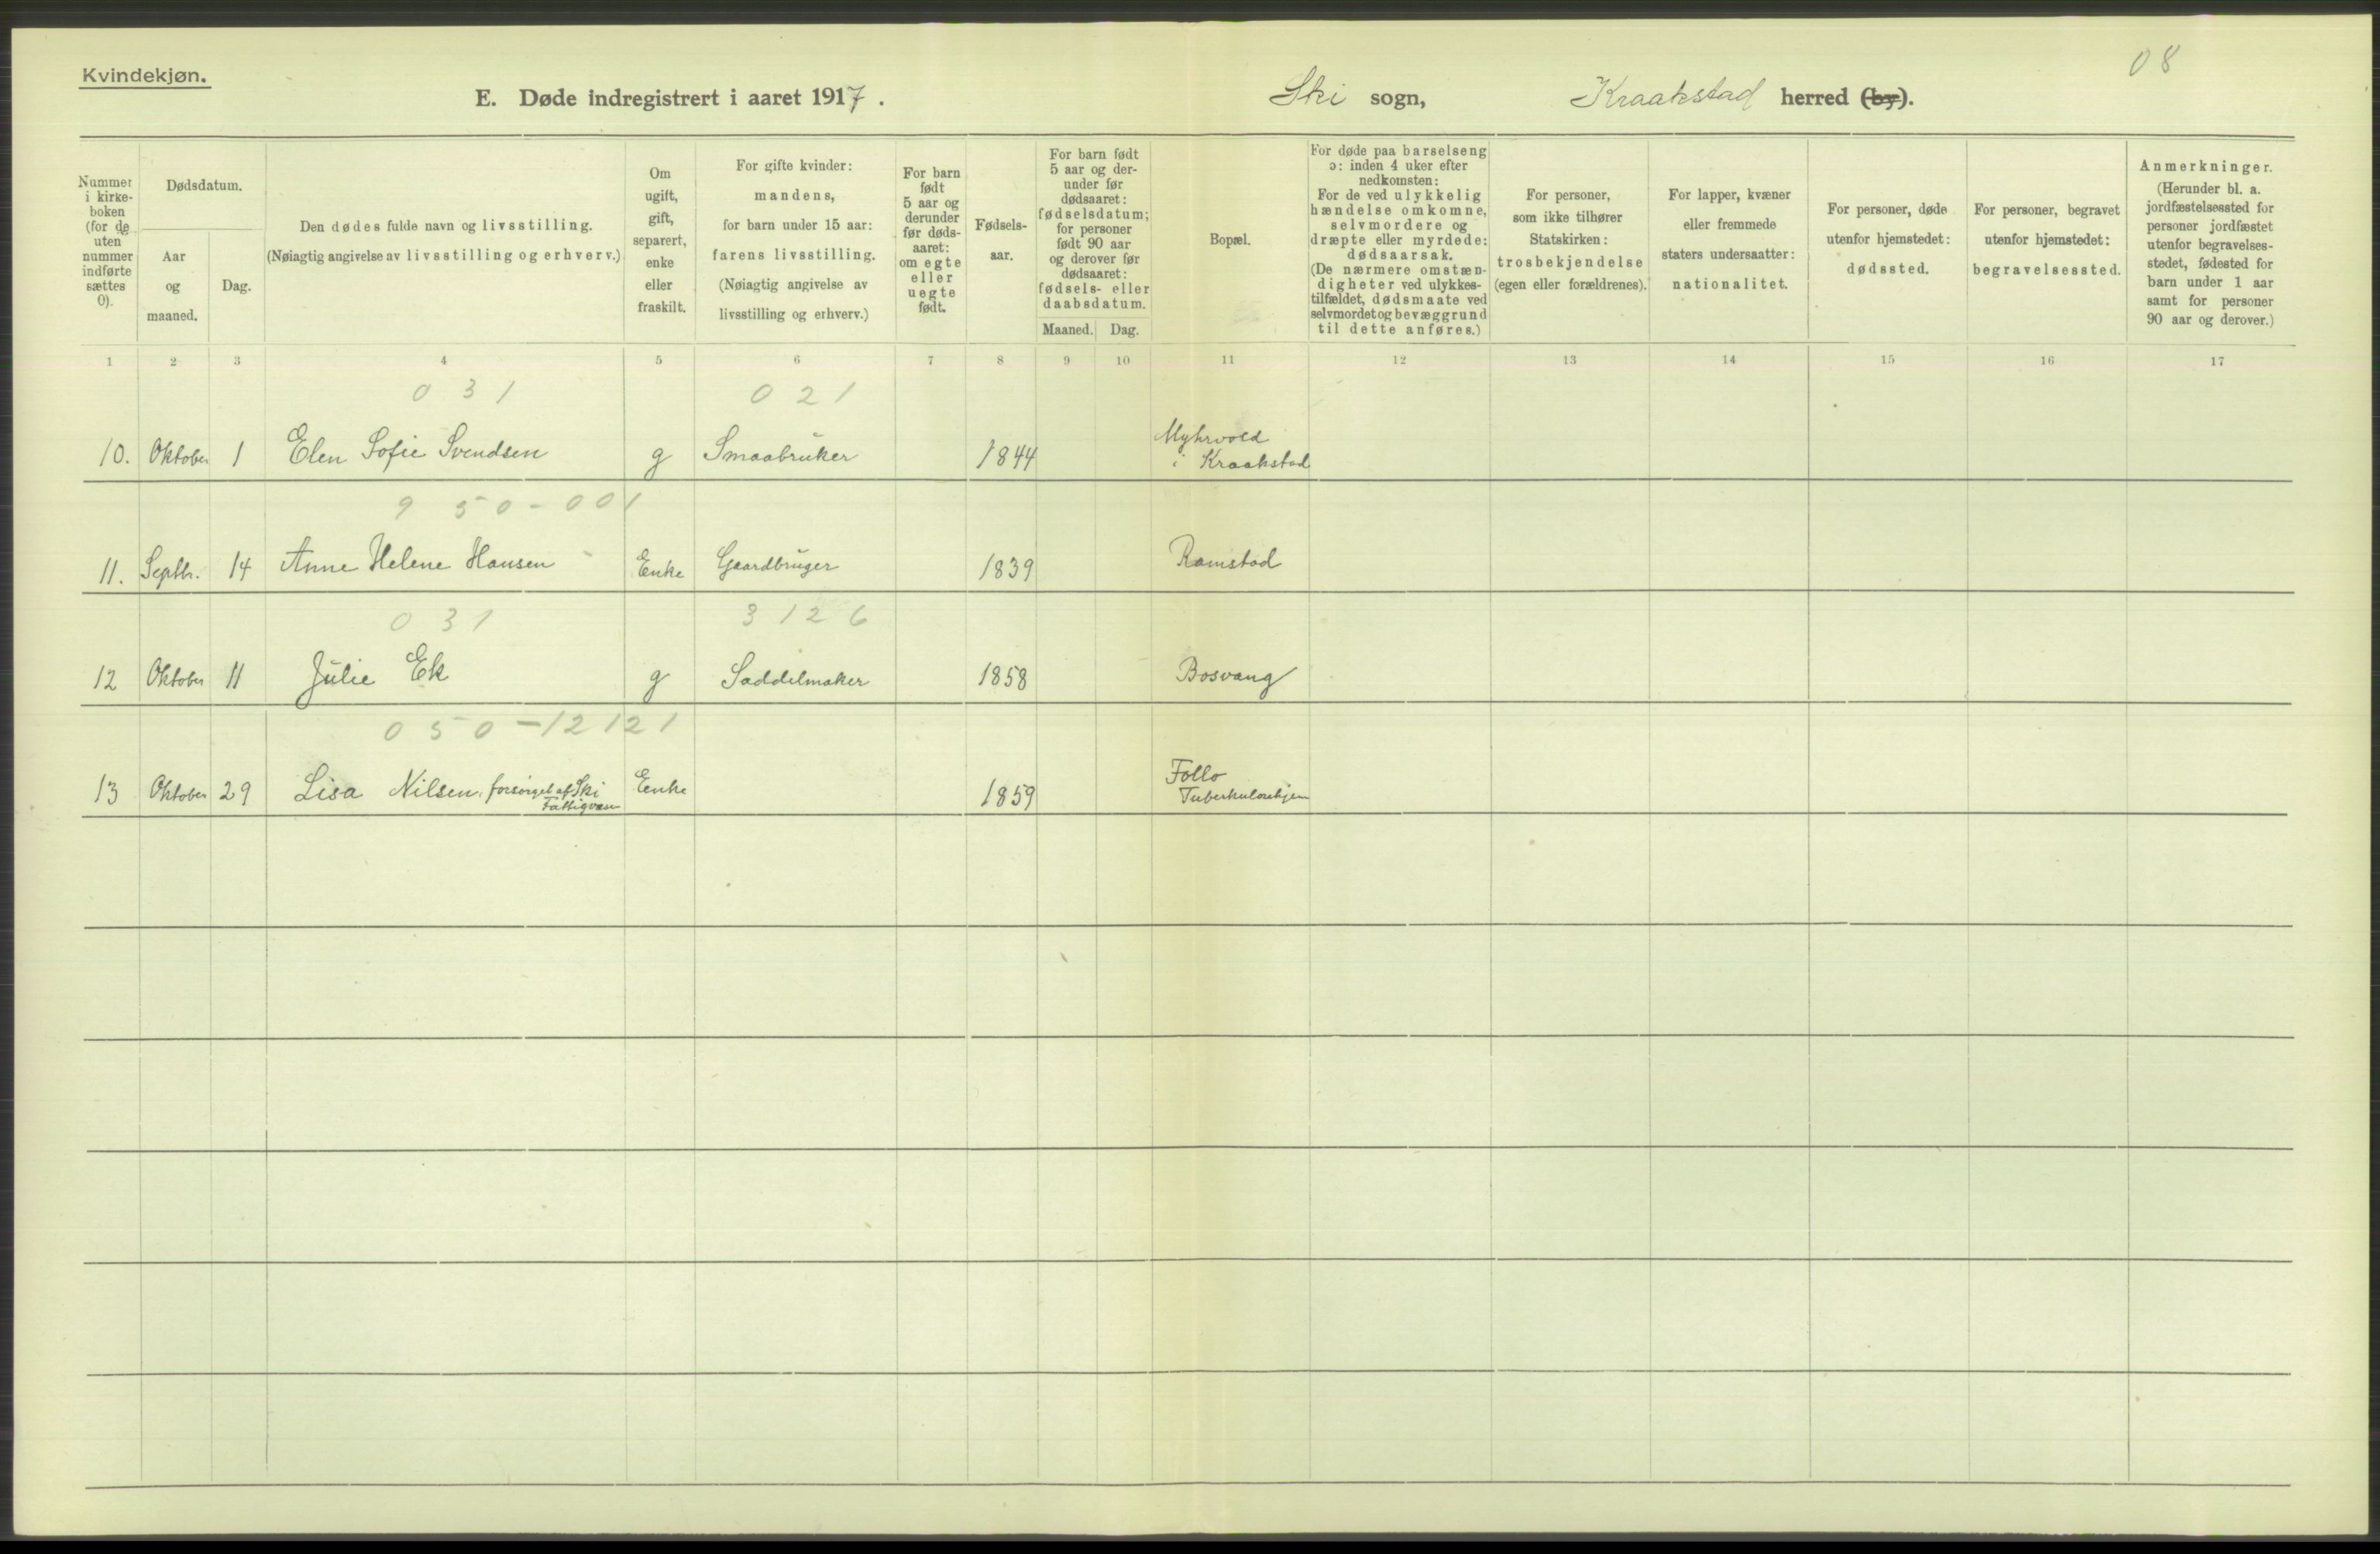 Kvindekjøn.
08
E. Døde indregistrert i aaret 1917. Ski sogn, Kraakstad herred (by).
Nummer
i kirke-
boken
(for de
uten
nummer
indførte
sættes
0).
Dødsdatum.
Aar
og
maaned.
Dag.
Den dødes fulde navn og livsstilling.
(Nøiagtig angivelse av livsstilling og erhverv.)
Om
ugift,
gift,
separert,
enke
eller
fraskilt.
For gifte kvinder:
mandens,
for barn under 15 aar:
farens livsstilling.
(Nøiagtig angivelse av
livsstilling og erhverv.)
For barn
født
5 aar og
derunder
før døds-
aaret:
om egte
eller
uegte
født.
Fødsels-
aar.
For barn født
5 aar og der-
under før
dødsaaret:
fødselsdatum;
for personer
født 90 aar
og derover før
dødsaaret:
fødsels- eller
daabsdatum.
Maaned. Dag.
Bopæl.
For døde paa barselseng
ɔ: inden 4 uker efter
nedkomsten:
For de ved ulykkelig
hændelse omkomne,
selvmordere og
dræpte eller myrdede:
dødsaarsak.
(De nærmere omstæn-
digheter ved ulykkes-
tilfældet, dødsmaate ved
selvmordet og bevæggrund
til dette anføres.)
For personer,
som ikke tilhører
Statskirken:
trosbekjendelse
(egen eller forældrenes).
For lapper, kvæner
eller fremmede
staters undersaatter:
nationalitet.
For personer, døde
utenfor hjemstedet:
dødssted.
For personer, begravet
utenfor hjemstedet:
begravelsessted.
Anmerkninger.
(Herunder bl. a.
jordfæstelsessted for
personer jordfæstet
utenfor begravelses-
stedet, fødested for
barn under 1 aar
samt for personer
90 aar og derover.)
1 2 3 4 5 6 7 8 9 10 11 12 13 14 15 16 17
031 021
10. Oktober 1 Elen Sofie Svendsen g Smaabruker 1844 Myhrvold
i Kraakstad
9 50-001
11. Septbr. 14 Anne Helene Hansen Enke Gaardbruger 1839 Ramstad
031 3126
12 Oktober 11 Julie Ek g Saddelmaker 1858 Bosvang
050-12121
13 Oktober 29 Lisa Nilsen, forsørget af Ski
Fattigvæsen
Enke 1859 Follo
Tuberkulosehjem